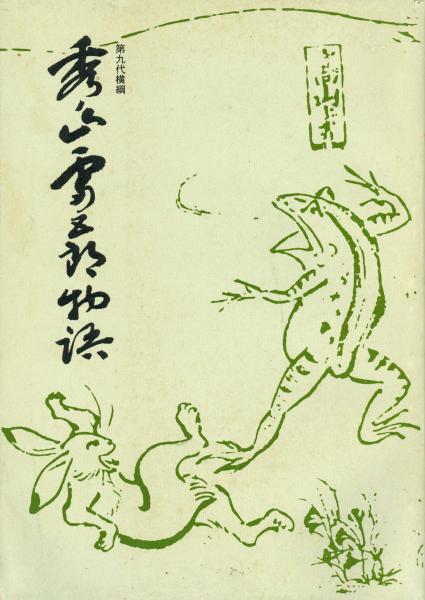 第九代横綱
秀ノ山雷五郎物語